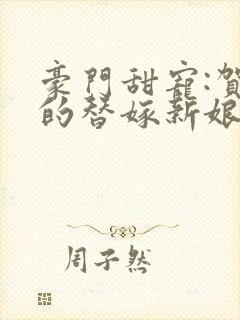 豪門甜寵:賀
的替嫁新娘
周子然